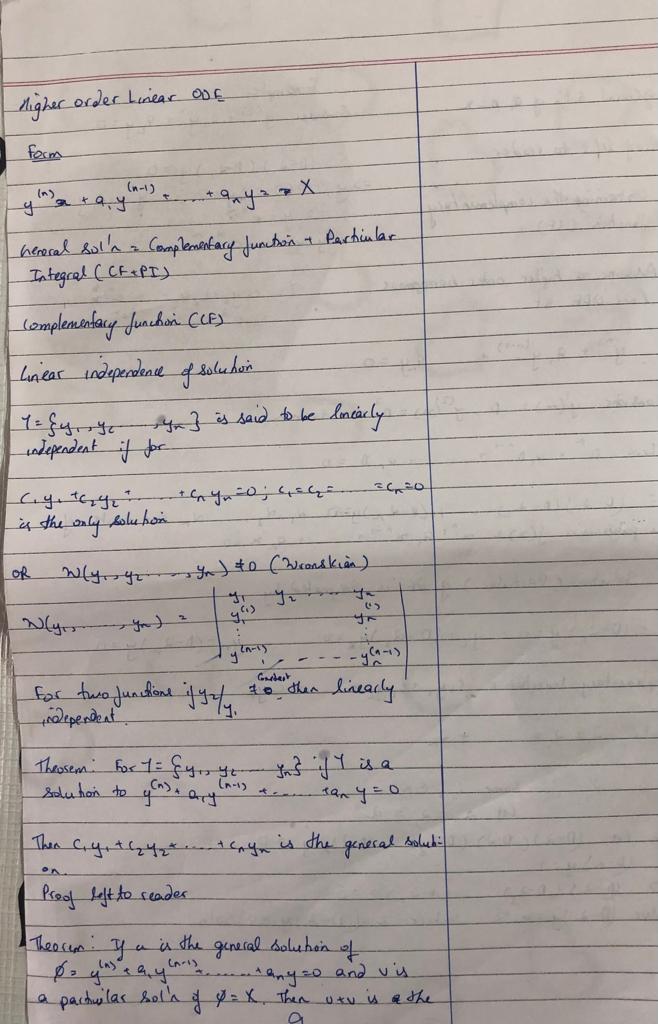 Higher order Linear ODE
Form
y^(n) + a₁ y^(n-1) + ...... + aₙ y = X
General sol'n = Complementary function + Particular
Integral (CF+PI)
Complementary function (CF)
Linear independence of solution
Y = {y₁, y₂ ......, yₙ} is said to be linearly
independent if for
c₁y₁ + c₂y₂ + ...... + cₙyₙ = 0 ; c₁ = c₂ = ...... = cₙ = 0
is the only solution
OR W(y₁, y₂ ......, yₙ) ≠ 0 (Wronskian)
W(y₁, ......, yₙ) = | y₁ y₂ ...... yₙ
y₁^(1) yₙ^(1)
⋮ ⋮
y₁^(n-1) . - - - - yₙ^(n-1) |
For two functions if y₂/y₁ ≠ Constant then linearly
independent.
Theorem: For Y = {y₁, y₂ ...... yₙ} if Y is a
solution to y^(n) + a₁y^(n-1) + ...... + aₙ y = 0
Then c₁y₁ + c₂y₂ + ...... + cₙyₙ is the general soluti-
on.
Proof left to reader
Theorem: If u is the general solution of
Ø = y^(n) + a₁ y^(n-1) + ...... + aₙy = 0 and v is
a particular sol'n of Ø = X. Then u+v is the